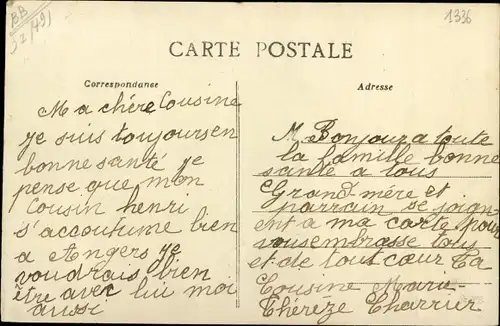 BB
1336
CARTE POSTALE
Correspondance
Adresse
Ma chère Cousine
je suis toujours en
bonne santé je
pense que mon
Cousin henri
s'accoutume bien
a Angers je
voudrais bien
être avec lui moi
aussi
M. Bonjour a toute
la famille bonne
santé a tous
Grand mère et
parrain se joign
ent a ma carte pour
vous embrasse tous
et de tout cœur Ta
Cousine Marie-
Thérèze Charrier